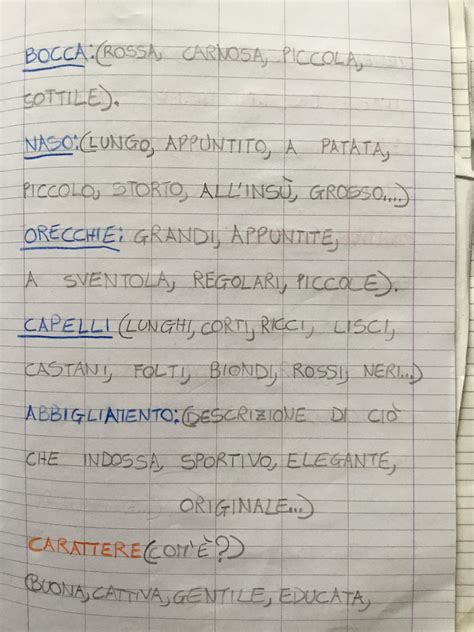 BOCCA:(ROSSA, CARNOSA, PICCOLA,
SOTTILE).
NASO:(LUNGO, APPUNTITO, A PATATA,
PICCOLO, STORTO, ALL'INSÙ, GROSSO....)
ORECCHIE: GRANDI, APPUNTITE,
A SVENTOLA, REGOLARI, PICCOLE).
CAPELLI (LUNGHI, CORTI, RICCI, LISCI,
CASTANI, FOLTI, BIONDI, ROSSI, NERI...)
ABBIGLIAMENTO:(DESCRIZIONE DI CIÒ
CHE INDOSSA, SPORTIVO, ELEGANTE,
ORIGINALE...)
CARATTERE (COM'È?)
(BUONA, CATTIVA, GENTILE, EDUCATA,